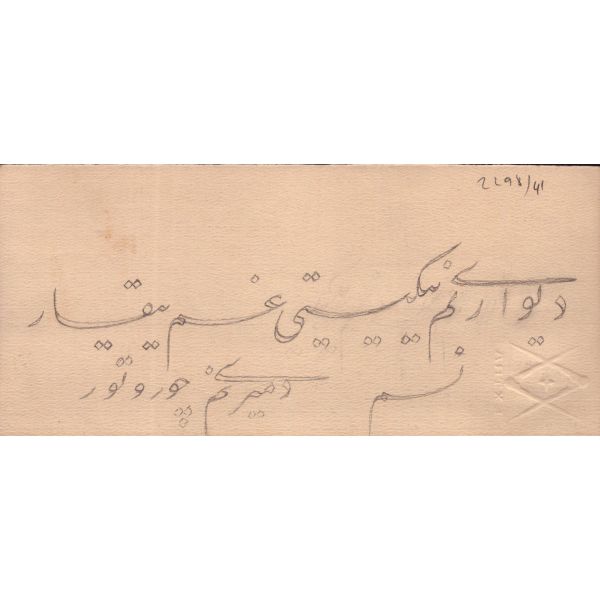 2298/41
دیواری نم ییکیتی غم ییقار
نم دمیری نم چوروتور